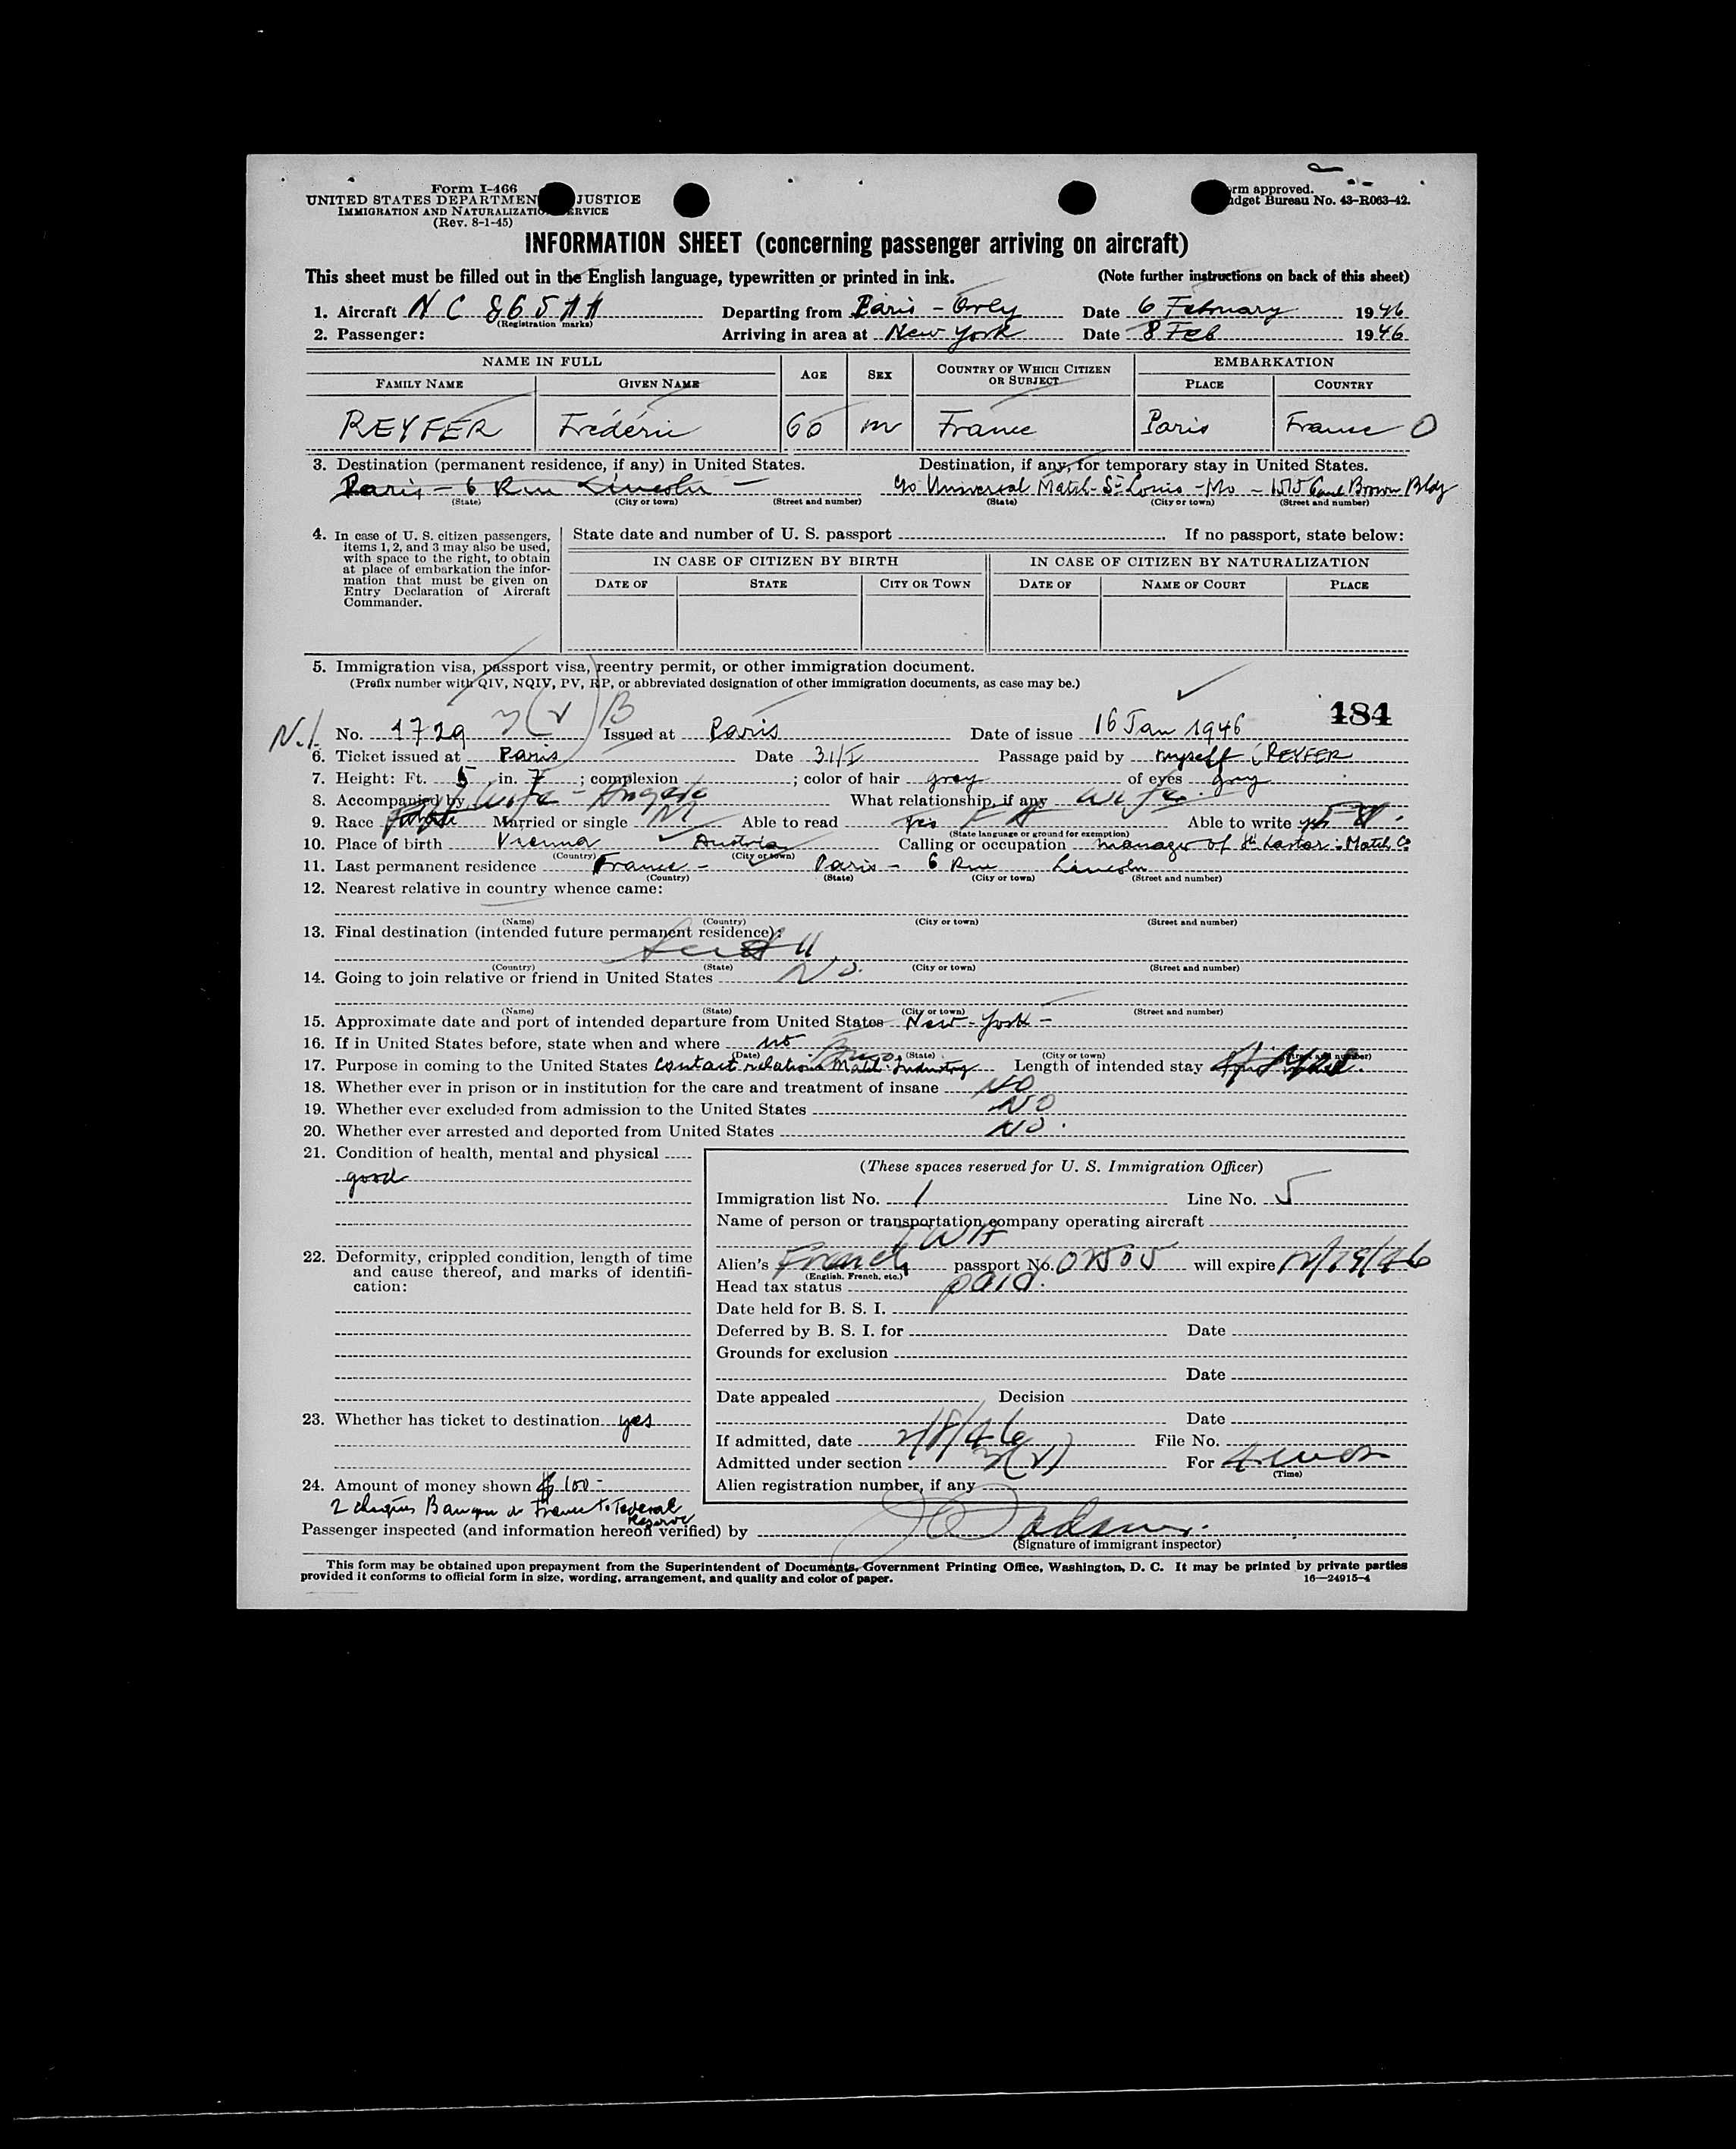 Form I-466
UNITED STATES DEPARTMEN JUSTICE
IMMIGRATION AND NATURALIZATIO ERVICE
(Rev. 8-1-45)
rm approved.
dget Bureau No. 43-R063-42.
INFORMATION SHEET (concerning passenger arriving on aircraft)
This sheet must be filled out in the English language, typewritten or printed in ink. (Note further instructions on back of this sheet)
1. Aircraft N C 865 Departing from Paris - Orly Date 6 February 1946
(Registration marks)
2. Passenger: Arriving in area at New York Date 8 Feb 1946
NAME IN FULL AGE SEX COUNTRY OF WHICH CITIZEN OR SUBJECT EMBARKATION
FAMILY NAME GIVEN NAME PLACE COUNTRY
REYFER Frédéric 60 m France Paris France O
3. Destination (permanent residence, if any) in United States. Destination, if any, for temporary stay in United States.
Paris - 6 Rue Lincoln - c/o Universal Match - St Louis - Mo - 1515 Paul Brown Bldg
(State) (City or town) (Street and number) (State) (City or town) (Street and number)
4. In case of U. S. citizen passengers, items 1, 2, and 3 may also be used, with space to the right, to obtain at place of embarkation the information that must be given on Entry Declaration of Aircraft Commander.
State date and number of U. S. passport If no passport, state below:
IN CASE OF CITIZEN BY BIRTH IN CASE OF CITIZEN BY NATURALIZATION
DATE OF STATE CITY OR TOWN DATE OF NAME OF COURT PLACE
5. Immigration visa, passport visa, reentry permit, or other immigration document.
(Prefix number with QIV, NQIV, PV, RP, or abbreviated designation of other immigration documents, as case may be.)
184
N.I. No. 1729 3(2) B Issued at Paris Date of issue 16 Jan 1946
6. Ticket issued at Paris Date 31/I Passage paid by myself (REYFER
7. Height: Ft. 5 in. 7 ; complexion ; color of hair grey of eyes grey
8. Accompanied by Wife - Angele What relationship, if any wife
9. Race Married or single M Able to read yes Able to write yes
(State language or ground for exemption)
10. Place of birth Vienna Austria Calling or occupation manager of Match Co
(Country) (City or town)
11. Last permanent residence France - Paris - 6 Rue Lincoln
(Country) (State) (City or town) (Street and number)
12. Nearest relative in country whence came:
(Name) (Country) (City or town) (Street and number)
13. Final destination (intended future permanent residence):
(Country) (State) (City or town) (Street and number)
14. Going to join relative or friend in United States No.
(Name) (State) (City or town) (Street and number)
15. Approximate date and port of intended departure from United States New-York -
16. If in United States before, state when and where no
(Date) (State) (City or town) (Street and number)
17. Purpose in coming to the United States Contact relations Match Industry Length of intended stay
18. Whether ever in prison or in institution for the care and treatment of insane NO
19. Whether ever excluded from admission to the United States NO
20. Whether ever arrested and deported from United States NO.
21. Condition of health, mental and physical
good
22. Deformity, crippled condition, length of time and cause thereof, and marks of identification:
23. Whether has ticket to destination yes
24. Amount of money shown $ 100 -
2 cheques Banque de France to Federal Reserve
(These spaces reserved for U. S. Immigration Officer)
Immigration list No. 1 Line No. 5
Name of person or transportation company operating aircraft
TWA
Alien's French passport No. 02505 will expire 12/19/46
(English, French, etc.)
Head tax status paid.
Date held for B. S. I.
Deferred by B. S. I. for Date
Grounds for exclusion
Date
Date appealed Decision
Date
If admitted, date 2/8/46 File No.
Admitted under section 3(2) For 4 mos
(Time)
Alien registration number, if any
Passenger inspected (and information hereon verified) by
(Signature of immigrant inspector)
This form may be obtained upon prepayment from the Superintendent of Documents, Government Printing Office, Washington, D. C. It may be printed by private parties
provided it conforms to official form in size, wording, arrangement, and quality and color of paper. 16—24915-4